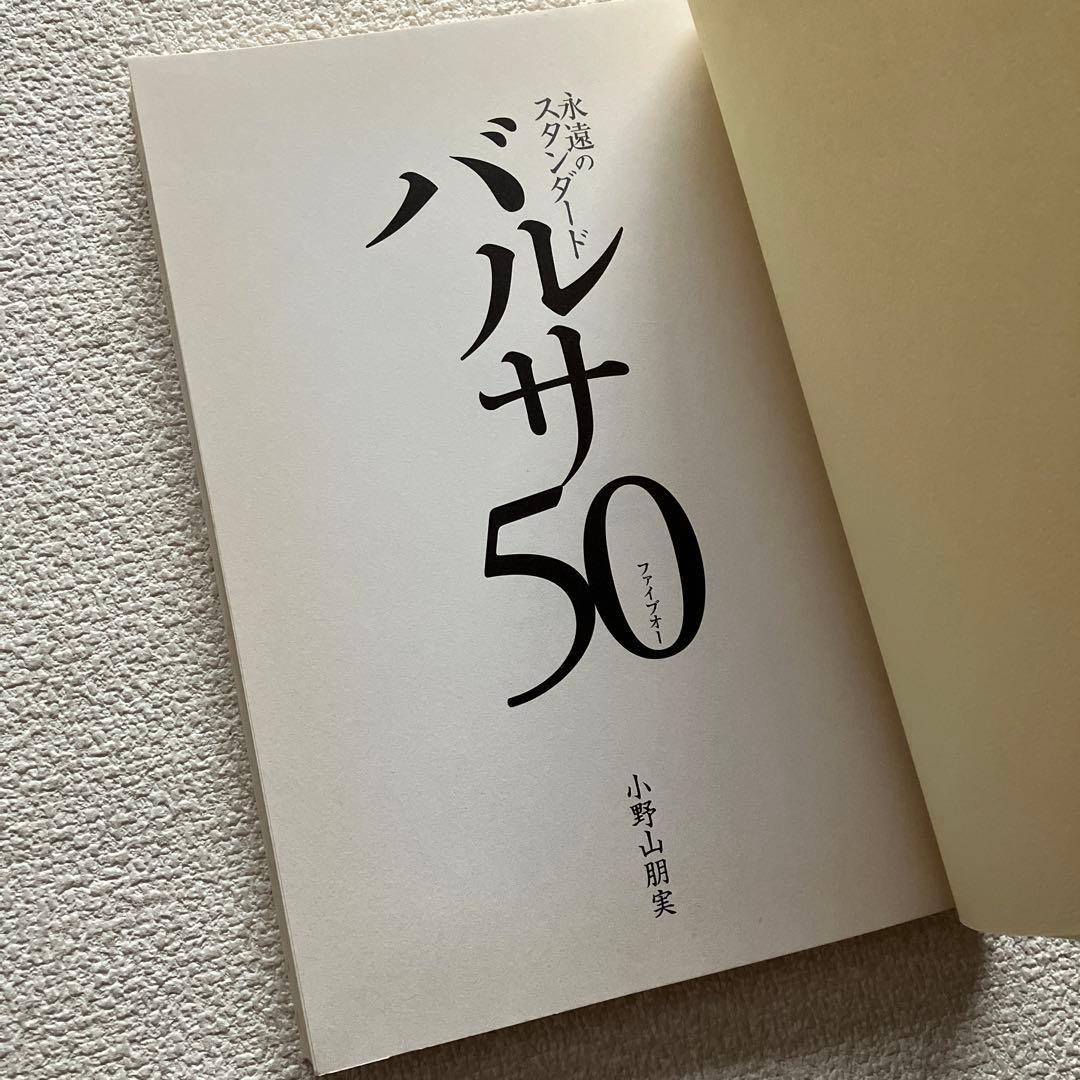 永遠の
スタンダード
バルサ50
ファイブオー
小野山朋実